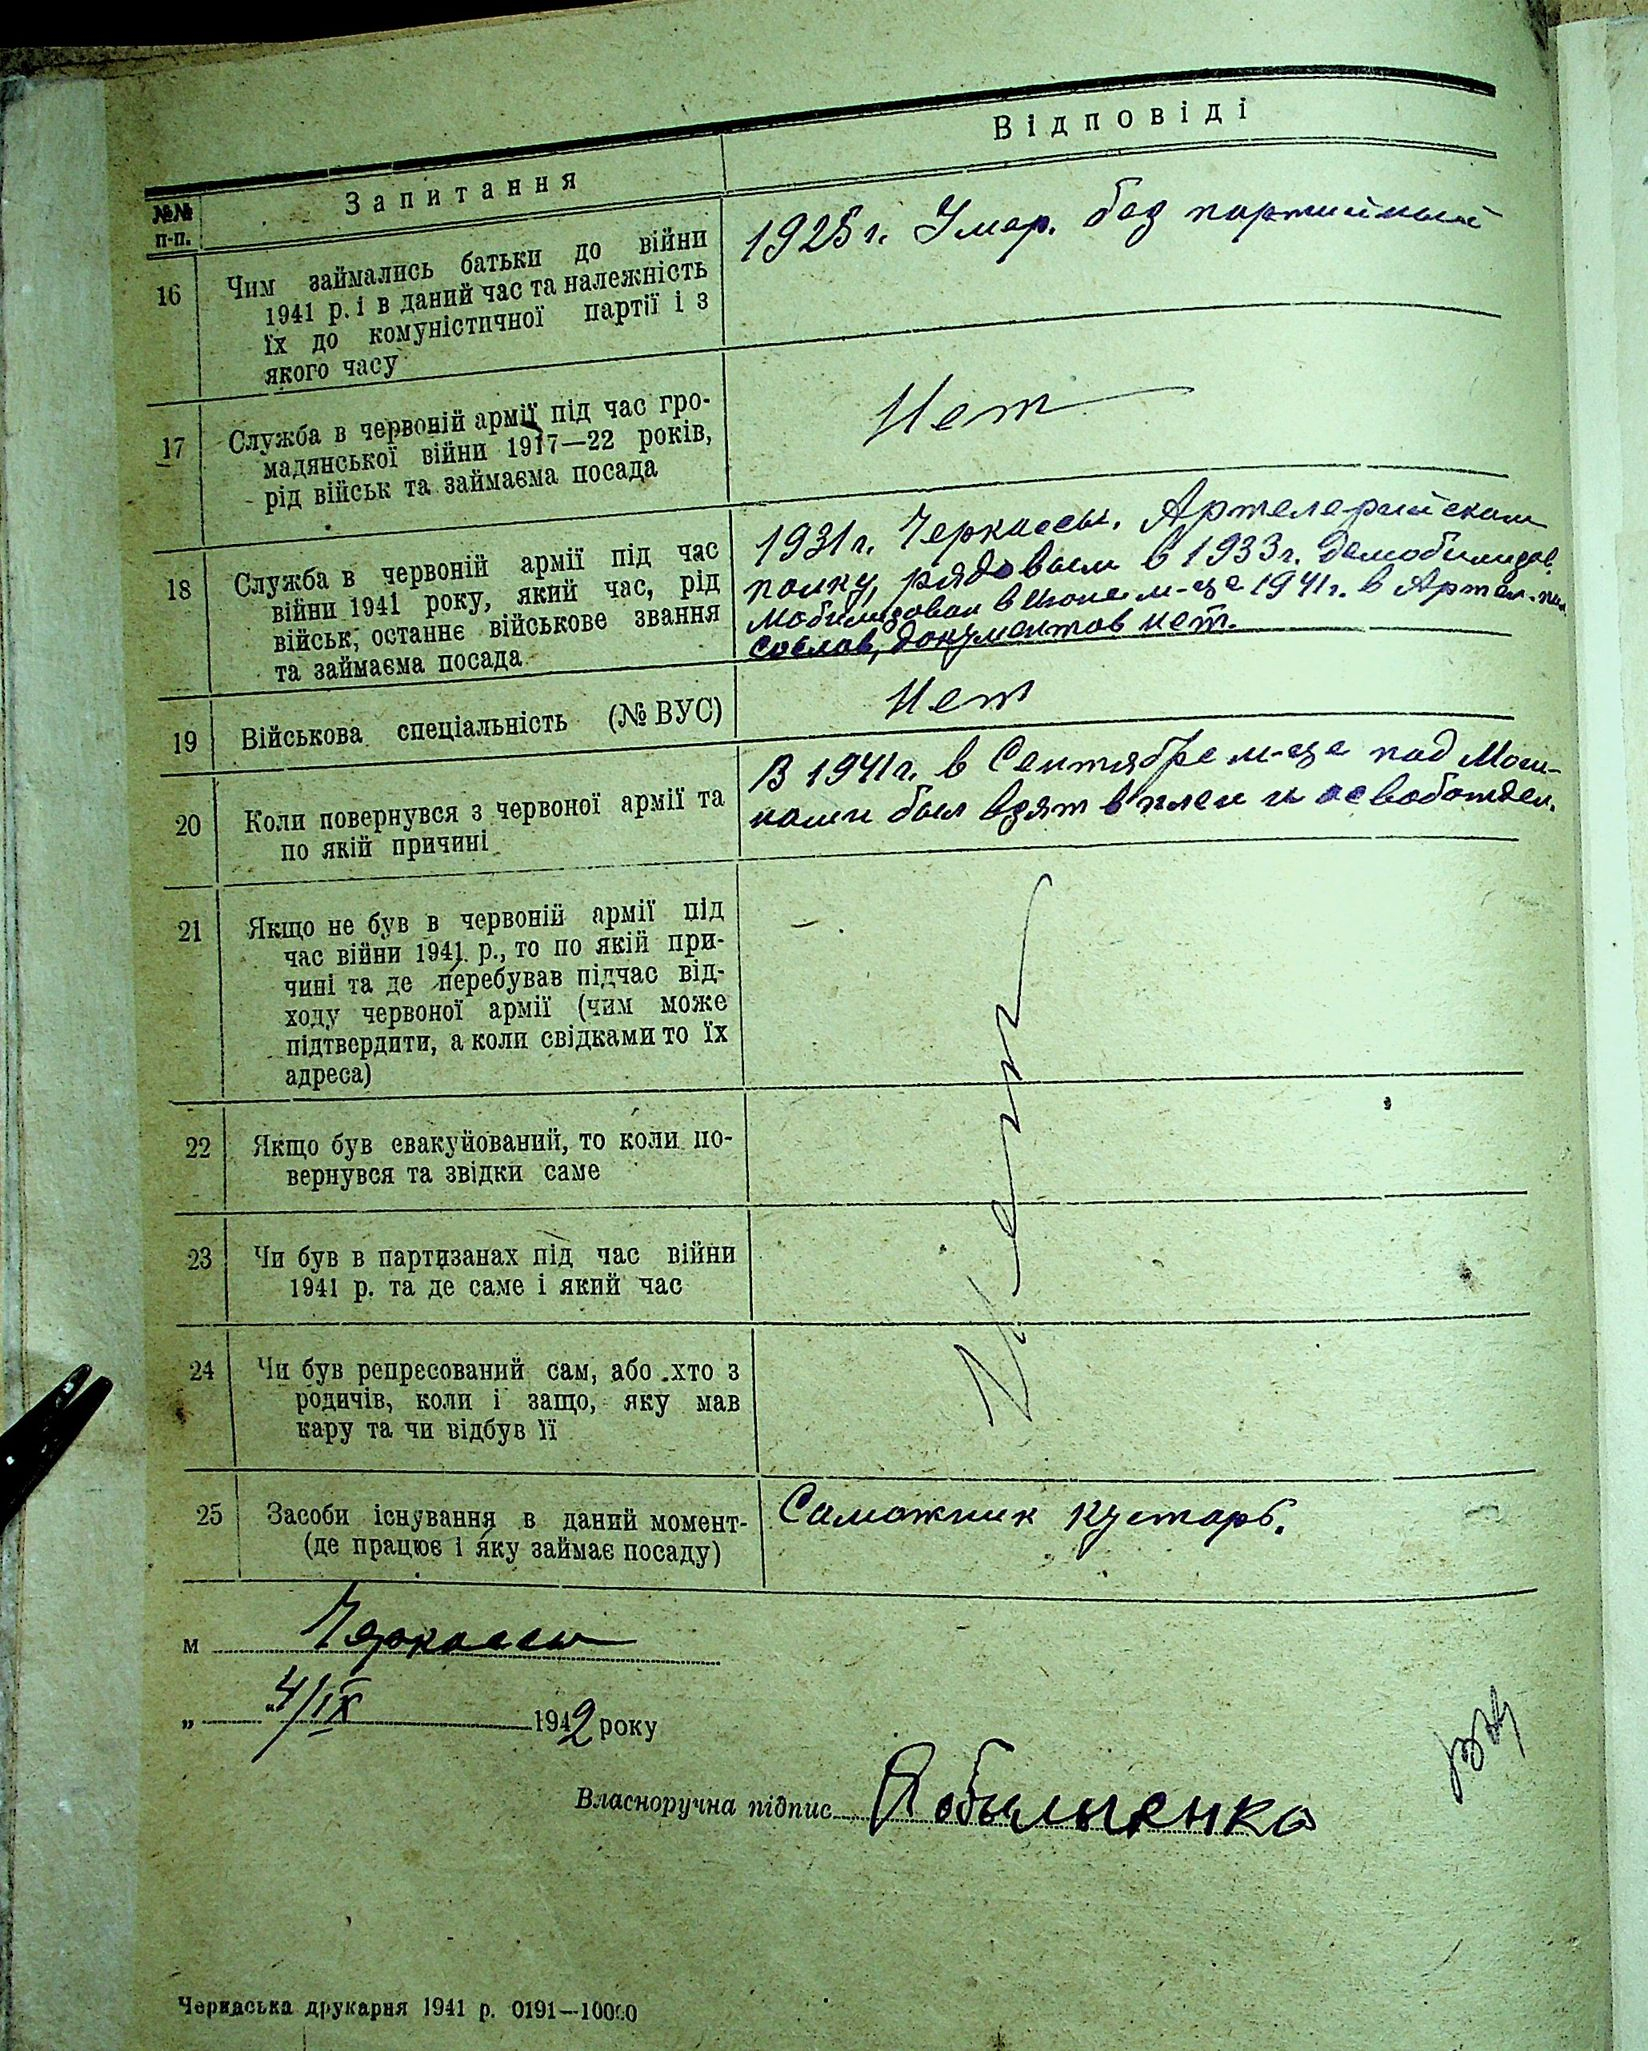 №№ п-п.
Запитання
Відповіді
16
Чим займались батьки до війни
1941 р. і в даний час та належність
їх до комуністичної партії і з
якого часу
1925г. Умер. без партийный
17
Служба в червоній армії під час гро-
мадянської війни 1917—22 років,
рід військ та займаєма посада
Нет
18
Служба в червоній армії під час
війни 1941 року, який час, рід
військ, останнє військове звання
та займаєма посада
1931г. Черкассы. Артелерийском
полку, рядовым в 1933г. демобилизов.
Мобилизован в Июне м-це 1941г. в Артел.
документов нет.
19
Військова спеціальність (№ ВУС)
Нет
20
Коли повернувся з червоної армії та
по якій причині
В 1941г. в Сентябре м-це под Мош-
нами был взят в плен и освобожден.
21
Якщо не був в червоній армії під
час війни 1941 р., то по якій при-
чині та де перебував підчас від-
ходу червоної армії (чим може
підтвердити, а коли свідками то їх
адреса)
22
Якщо був евакуйований, то коли по-
вернувся та звідки саме
23
Чи був в партизанах під час війни
1941 р. та де саме і який час
24
Чи був репресований сам, або хто з
родичів, коли і защо, яку мав
кару та чи відбув її
Нет
25
Засоби існування в даний момент-
(де працює і яку займає посаду)
Саможник кустарь.
м Черкассы
„ 4/IX 1942 року
Власноручна підпис
Черкаська друкарня 1941 р. 0191—10000